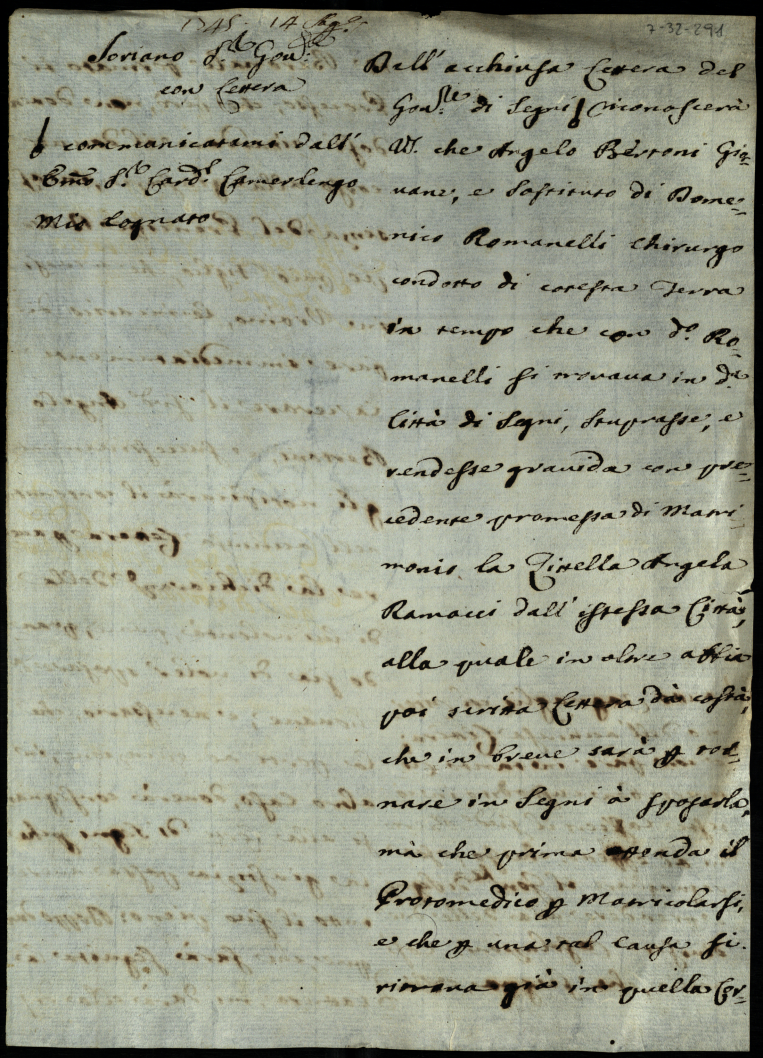 1745. 14 Mag.
7-32-291
Soriano S.r Gov.
con Lettera
communicatami dall'
Emo S.r Card.l Camerlengo
mio Cognato
Dall'acchiusa Lettera del
Gov.re di Segni riconoscerà
VS. che Angelo Bertoni Gio-
vane, e Sostituto di Dome-
nico Romanelli Chirurgo
condotto di cotesta Terra
in tempo che con d.o Ro-
manelli si trovava in d.a
Città di Segni, stuprasse, e
rendesse gravida con pre-
cedente promessa di Matri-
monio la Zittella Angela
Ramacci dall'istessa Città,
alla quale in oltre abbia
poi scritta Lettera da costà,
che in breve sarà p tor-
nare in Segni à sposarla,
mà che prima attenda il
Protomedico p Matricolarsi,
e che p una tal causa si
ritrova già in quella Cor-